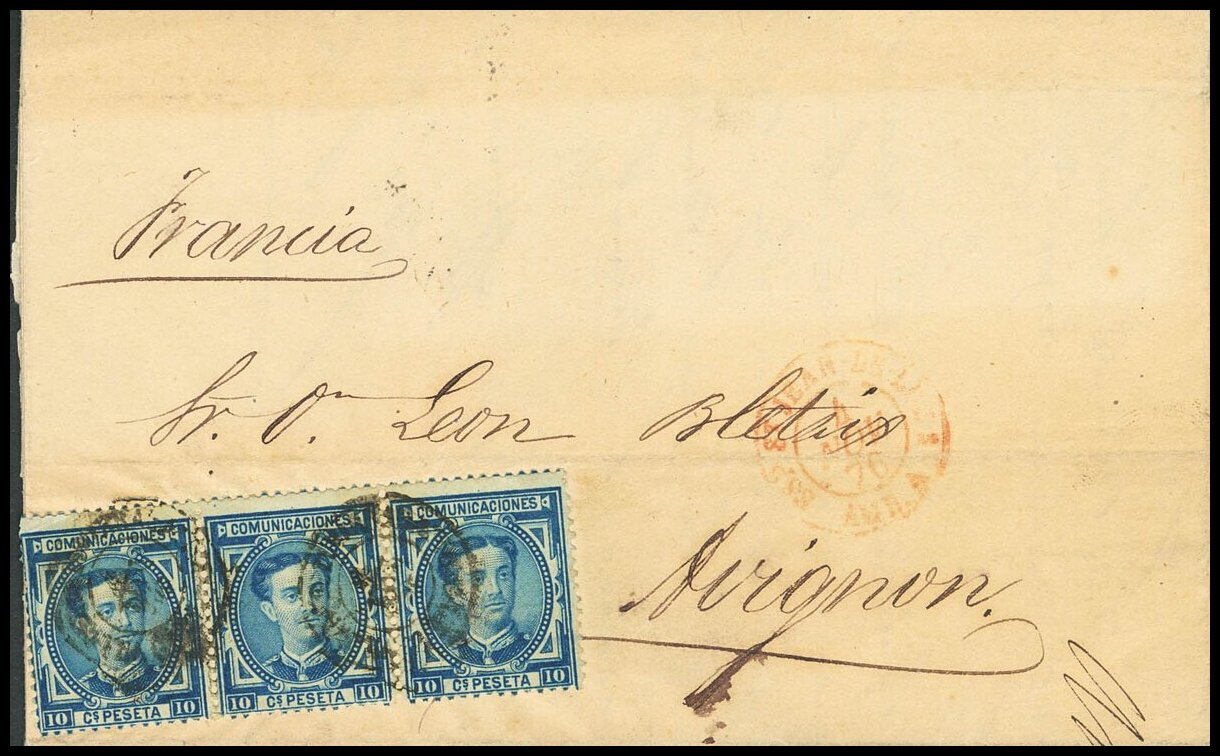 Francia
Sr. Dn Leon Bletrix
Avignon.
COMUNICACIONES
10 Cs PESETA 10
COMUNICACIONES
10 Cs PESETA 10
COMUNICACIONES
10 Cs PESETA 10
ST JEAN-DE-LUZ
76
AMB.